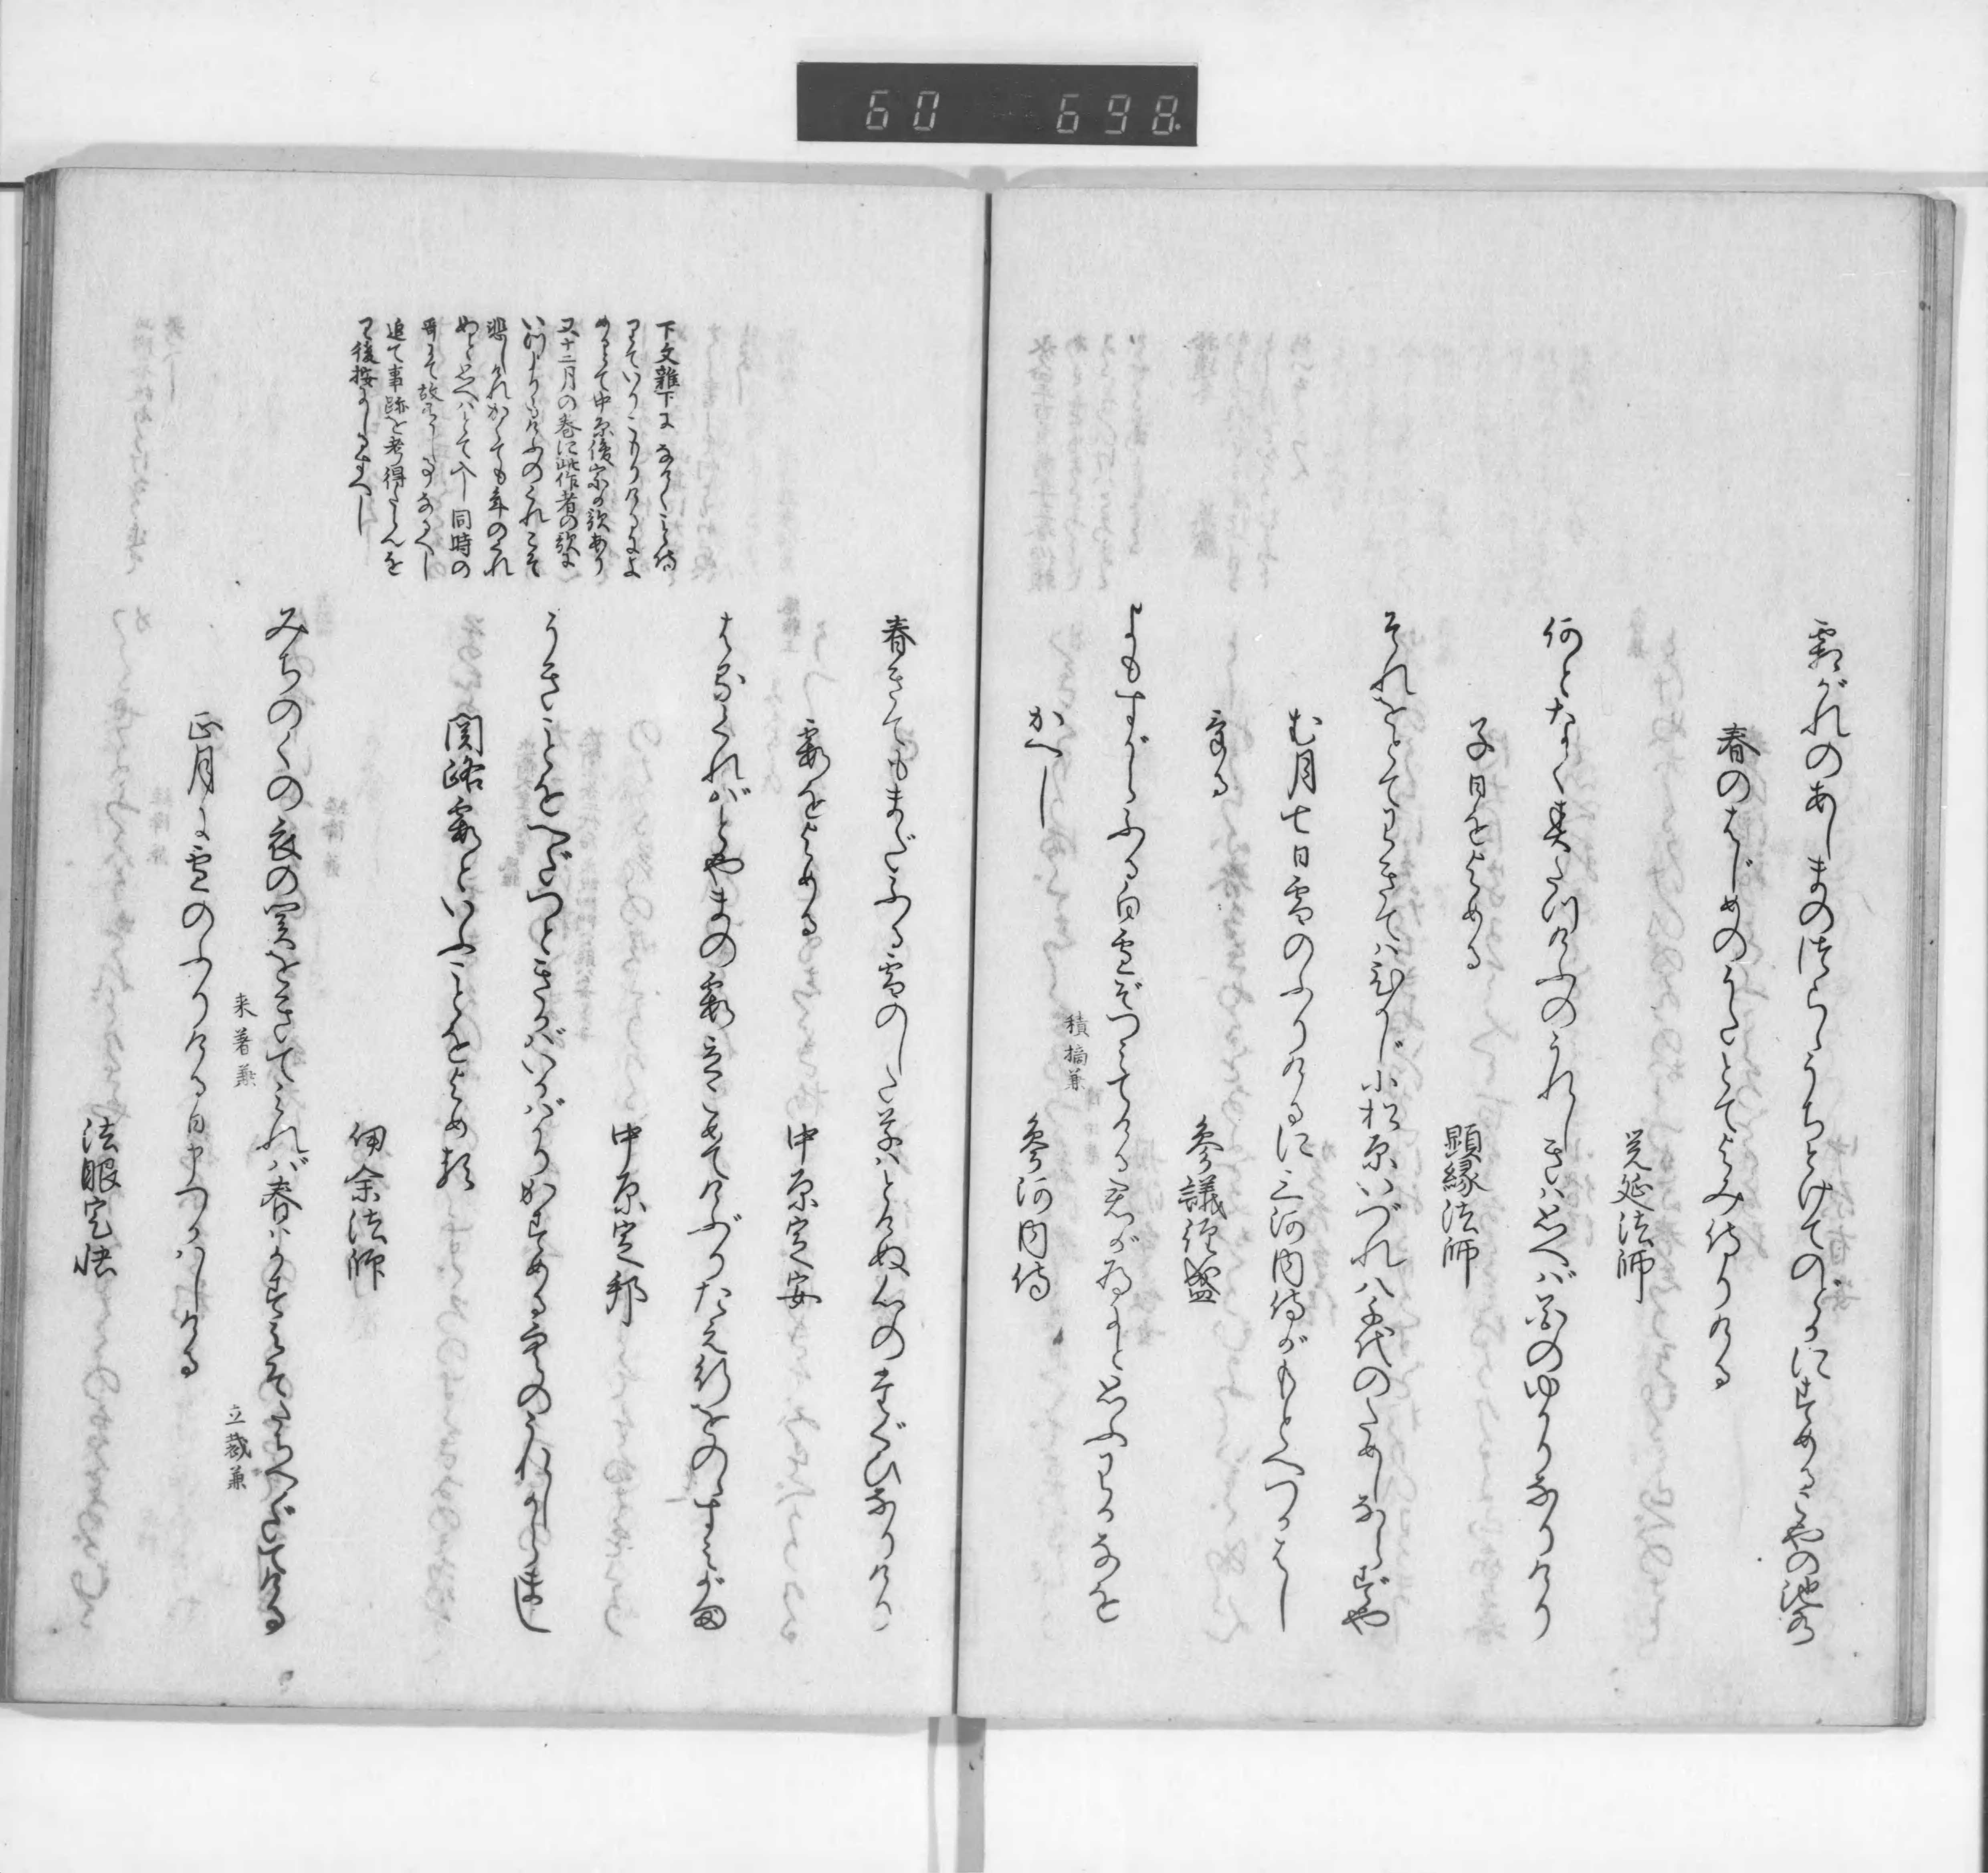 60 698
霜がれのあしまのつらゝうちとけてのどかにすめるこやの池水
春のはじめのうたとてよみ侍りける
覚延法師
何となく春たつけふのうれしきは思へば花のゆかりなりけり
子日をよめる
顕縁法師
それをとてわきてはひかじ小松原いづれハ千代のためしならずや
む月七日雪のふりけるに三河内侍がもとへつかはし
ける
参議経盛
よもすがらふる白雪ぞつみてける君が為にと思ふわかなを
積摘兼
かへし
参河内侍
春きてもまだふる雪のした草はとけぬ心のたぐひなりけり
霞をよめる
中原定安
はるくればとやまの霞立こめて
中原定邦
うきことをへだつときかばいかばかりかすめる空のうれしからまし
関路霞といふことをよめる
伊余法師
みちのくの衣の関をきてみれば春はかすみぞたちへだてける
来著兼
立裁兼
正月に雪のふりける日申つかはしける
法眼定快
下文雑下に
めるとて中原俊宗の歌あり
又十二月の巻に此作者の歌に
いつよりもけふのくれこそ
悲しけれかくても年のくれ
ぬと思へはとて入し同時の
追て事跡を考得たらんを